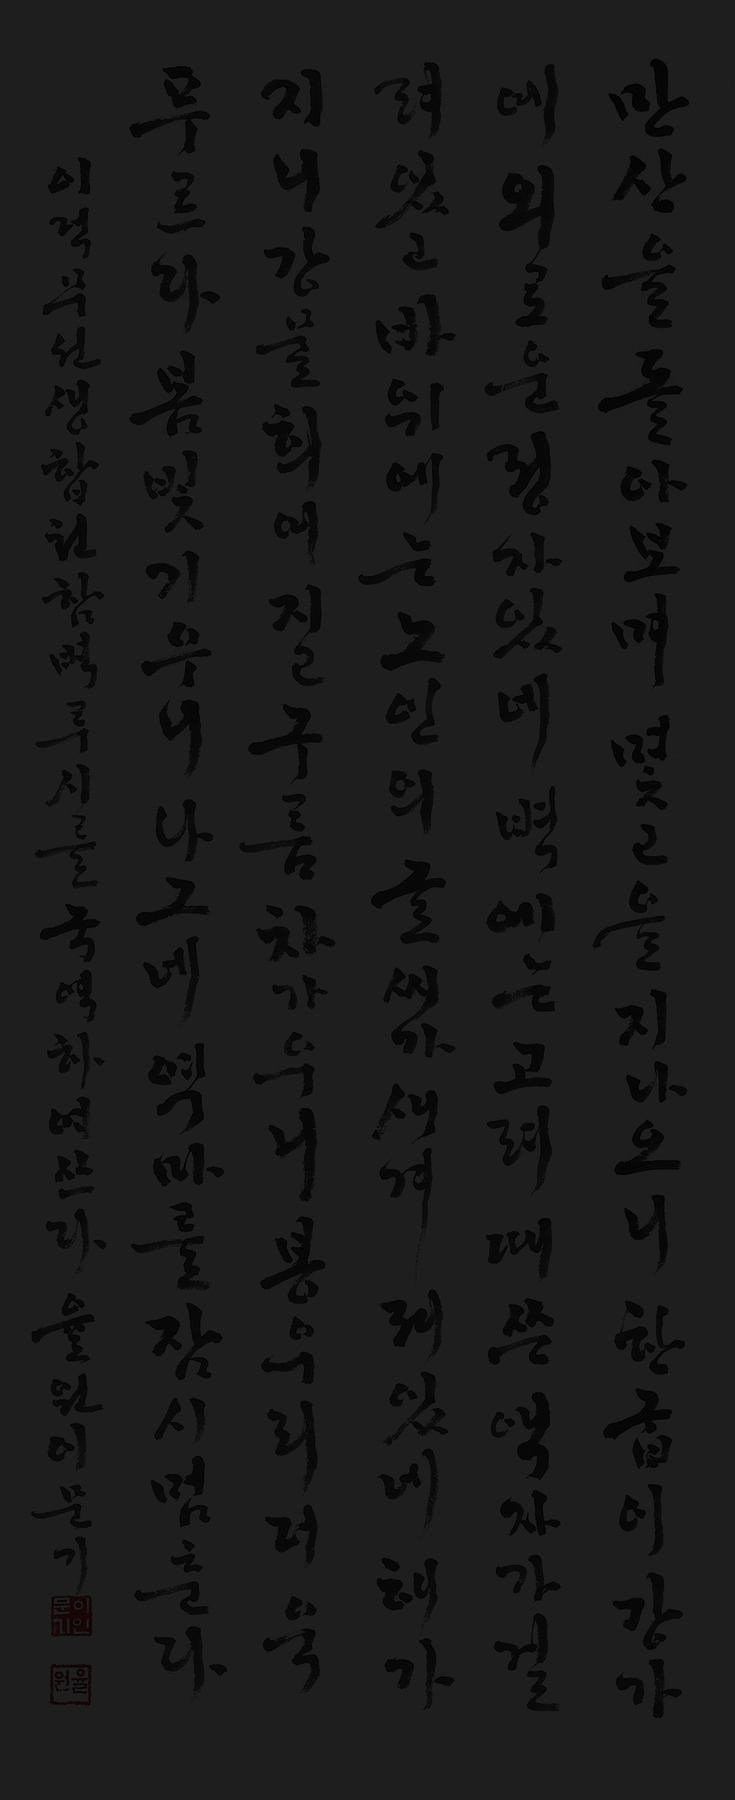 만산을돌아보며몇고을지나오니한굽이강가
에외로운정자있네벽에는고려때쓴액자가걸
려있고바위에는노인의글씨가새겨져있네해가
지니강물희여지고구름차가우니봉우리더욱
푸르다봄빛기우니나그네역마를잠시멈춘다
이적무선생합천함벽루시를국역하여쓰다율원이문기
이인문기
율원